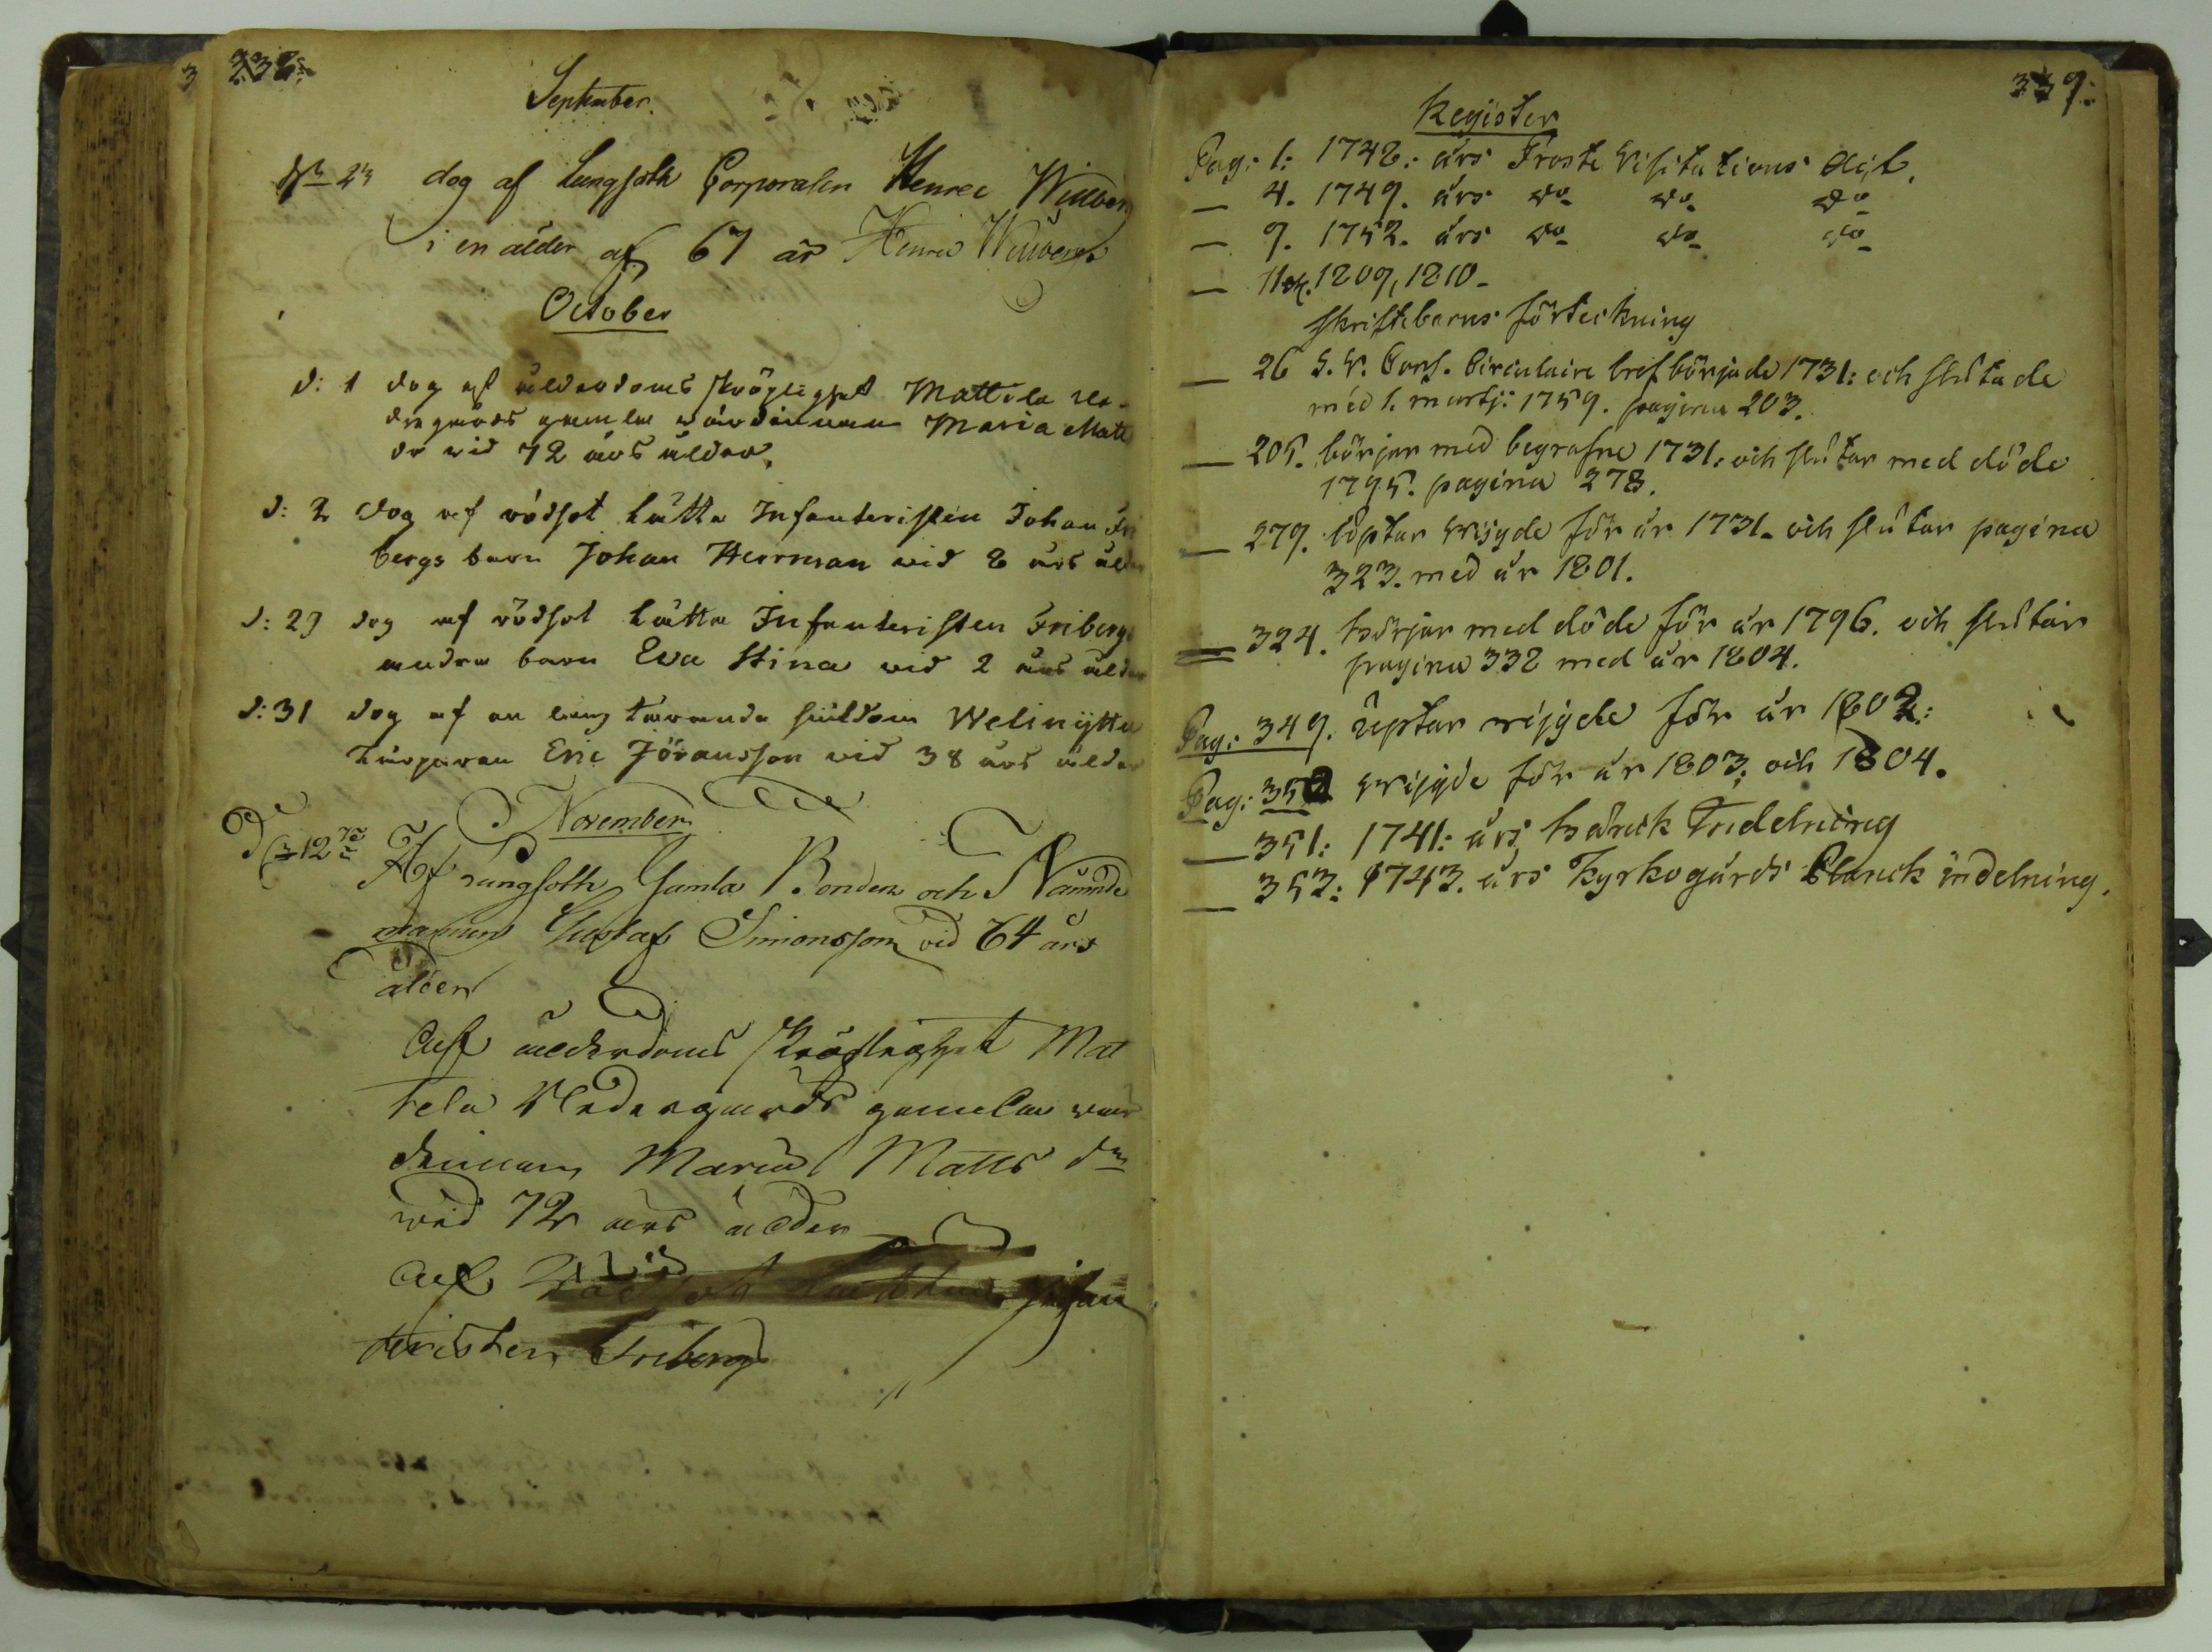 338.
September.
dog af Lungsoth Corporalen Henric Willberg
i en ålder af 67 år Henric Willbergs
October
d: 1 dog af ålderdoms skröplighet Mattila Ne-
dergårds gamla wärdinnan Maria Matts
dr wid 72 års ålder.
d: 2 dog af rödsot Lätta Infanteristen Johan Fri
bergs barn Johan Herrman wid 8 års ålder
d: 29 dog af rödsot Lätta Infanteristen Fribergs
andra barn Eva Stina wid 2 års ålder
d: 31 dog af en lång tärande siukdom Welinytta
Eric Jöransson wid 38 års ålder
November
D 12 Af Lungsoth Gamla Bonden och Nämnde
mannen Gustaf Simonsson vid 64 års
ålder
Af ålderdoms skröplighet Mat
tela Nedergårds gamla wär
dinnan Maria Matts dr
wid 72 års ålder
Af Rödsot Lätta Infan
teristen Fribergs
339.
Register
Pag: 1: 1748: års Proste Visitations Act.
— 4. 1749. års do do do
— 9. 1752. års do do do
— 11 1809, 1810.
skriftebarns förteckning
— 26 S. V. Cons. Circulaire bref började 1731: och slutade
med 1. martj: 1759. pagina 203.
— 205. börjar med begrafne 1731. och slutar med döde
1795. pagina 278.
— 279. uptar wijgde för år 1731. och slutar pagina
323. med år 1801.
— 324. börjar med döde för år 1796. och slutar
pagina 338 med år 1804.
Pag: 349. uptar wijgde för år 1802:
Pag: 350 wijgde för år 1803, och 1804.
— 351: 1741: års bänck Indelning
— 353: 1743. års Kyrkogårds Planck indelning.